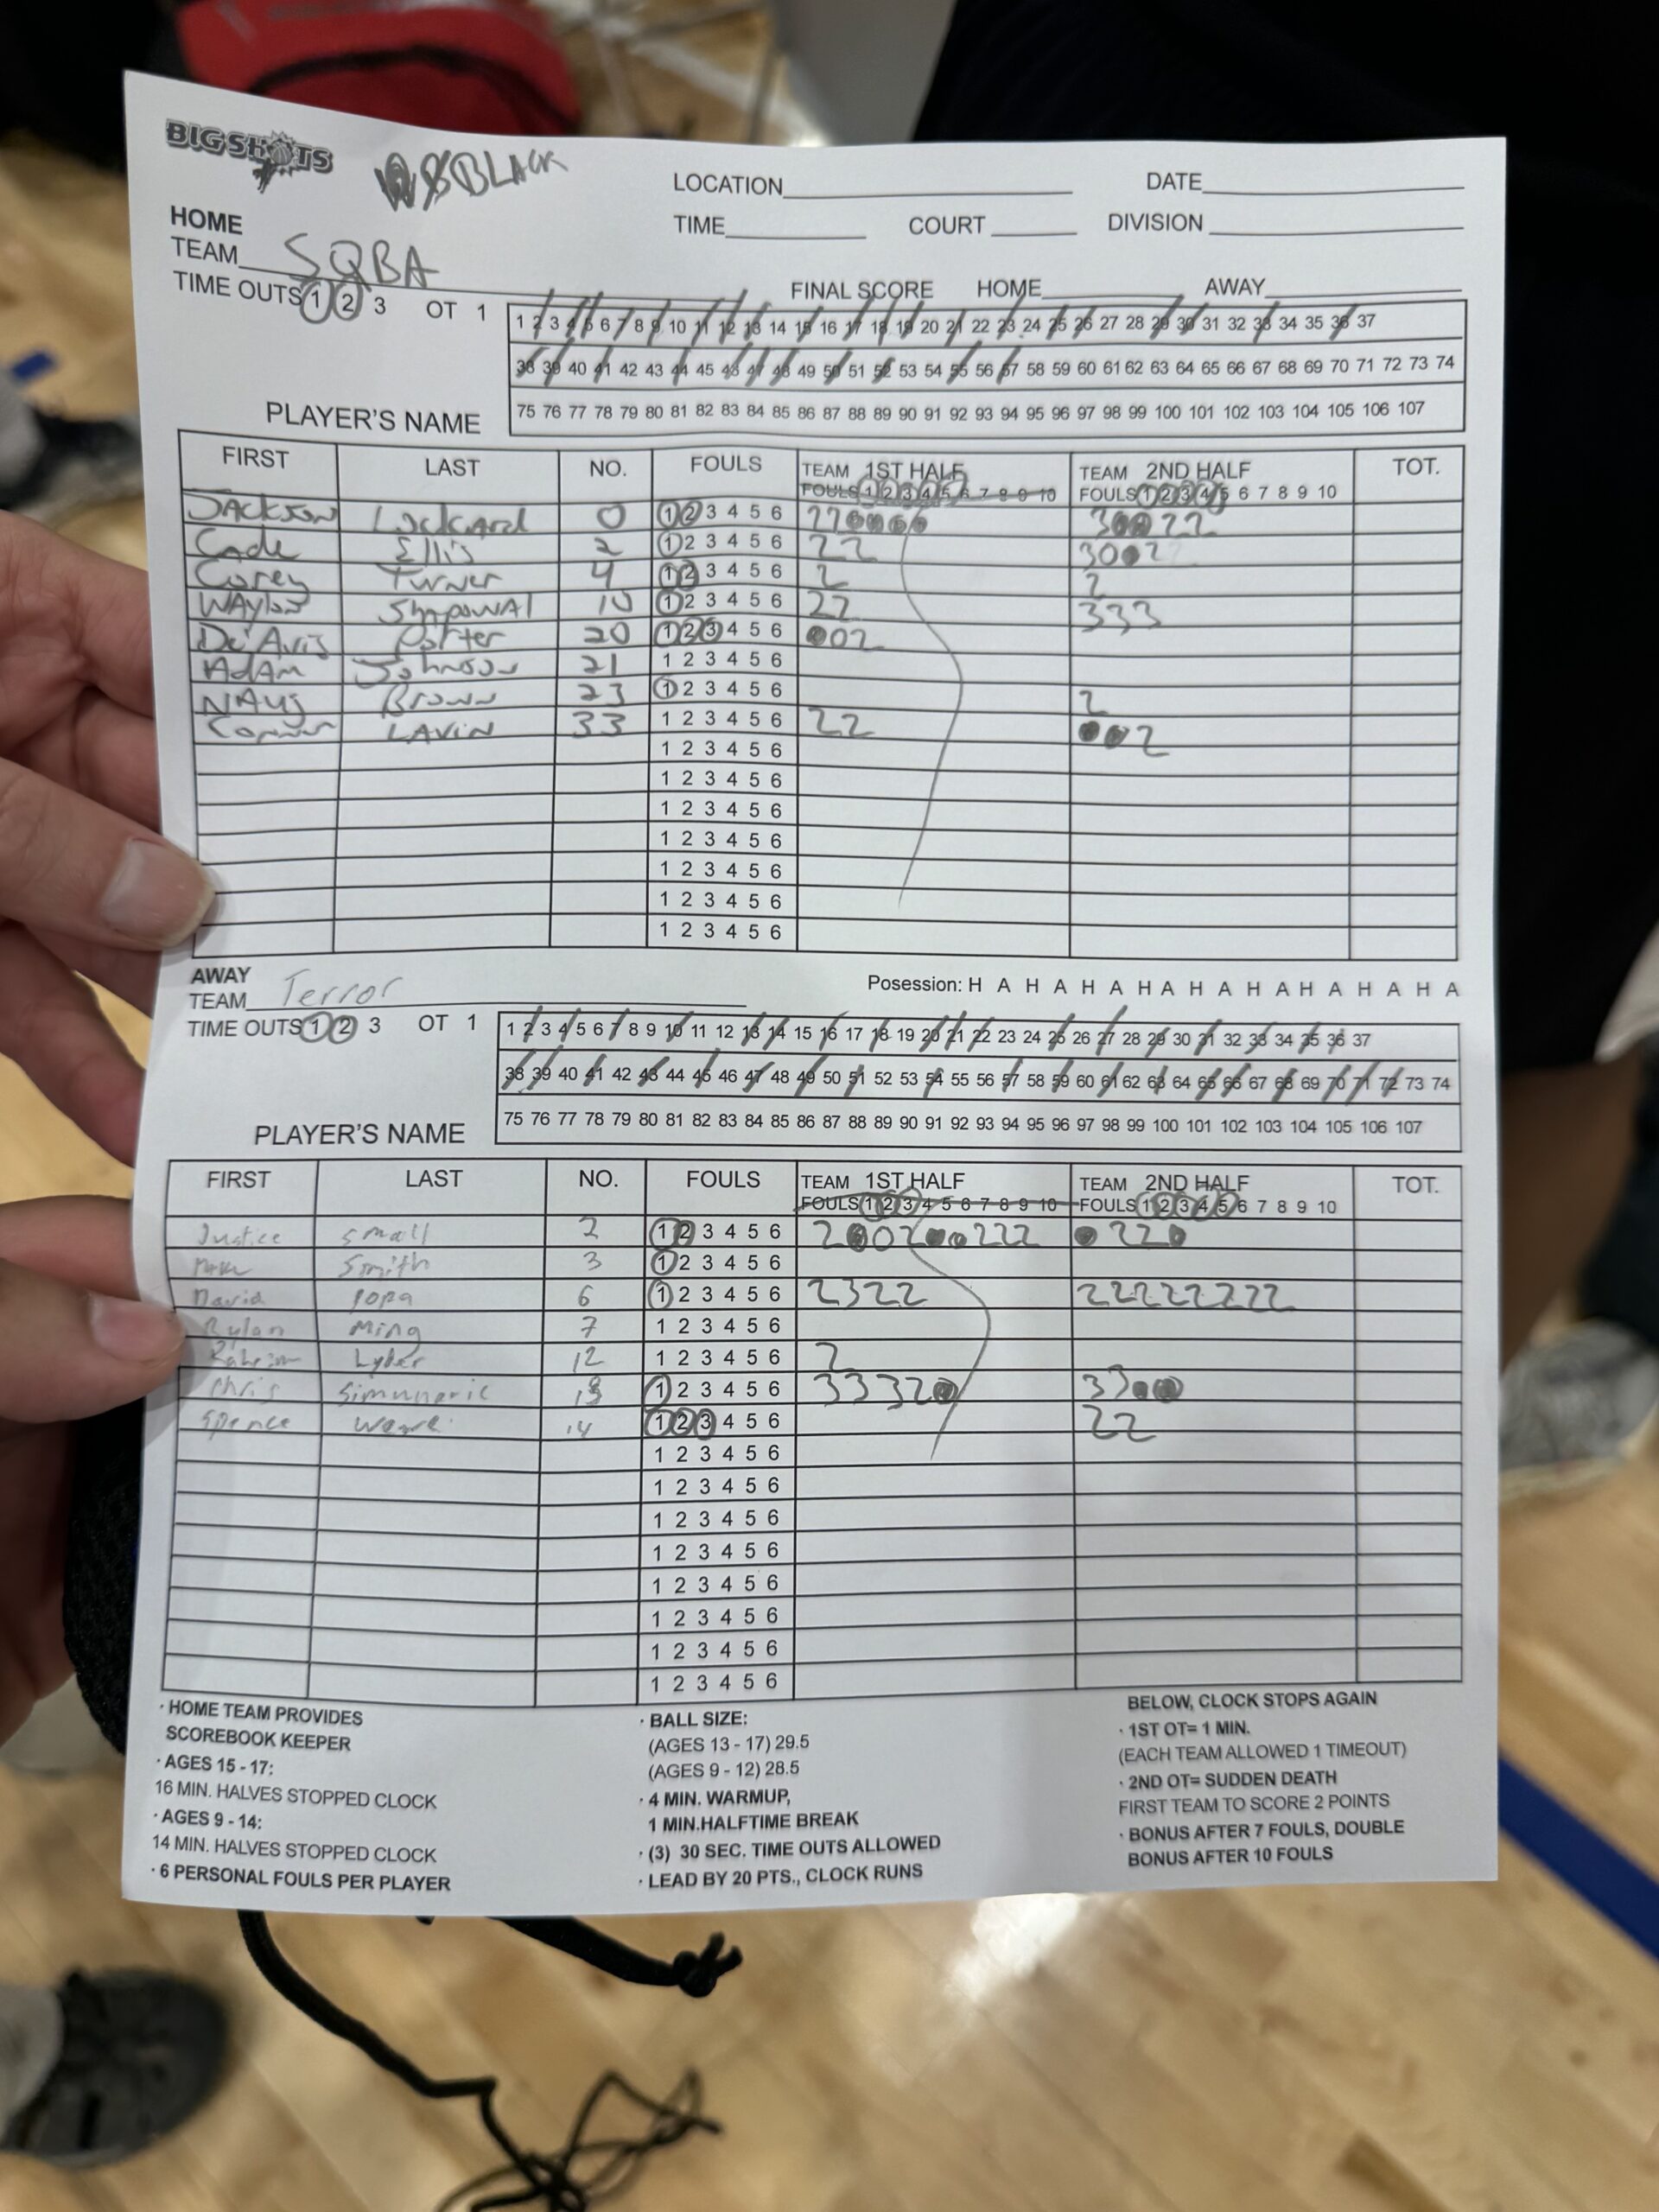 BIG SHOTS BLACK
LOCATION DATE
HOME TIME COURT DIVISION
TEAM SQBA
TIME OUTS 1 2 3 OT 1 FINAL SCORE HOME AWAY
1 2 3 4 5 6 7 8 9 10 11 12 13 14 15 16 17 18 19 20 21 22 23 24 25 26 27 28 29 30 31 32 33 34 35 36 37
38 39 40 41 42 43 44 45 46 47 48 49 50 51 52 53 54 55 56 57 58 59 60 61 62 63 64 65 66 67 68 69 70 71 72 73 74
75 76 77 78 79 80 81 82 83 84 85 86 87 88 89 90 91 92 93 94 95 96 97 98 99 100 101 102 103 104 105 106 107
PLAYER'S NAME
FIRST LAST NO. FOULS TEAM 1ST HALF TEAM 2ND HALF TOT.
FOULS 1 2 3 4 5 6 7 8 9 10 FOULS 1 2 3 4 5 6 7 8 9 10
Jackson Lockard 0 1 2 3 4 5 6 22 3 22
Cade Ellis 2 1 2 3 4 5 6 22 30 2
Corey Turner 4 1 2 3 4 5 6 2 2
Waylon 10 1 2 3 4 5 6 22 333
De'Avis Porter 20 1 2 3 4 5 6 02
Adam Johnson 21 1 2 3 4 5 6
Brown 23 1 2 3 4 5 6 2
Connor Lavin 33 1 2 3 4 5 6 22 2
1 2 3 4 5 6
1 2 3 4 5 6
1 2 3 4 5 6
1 2 3 4 5 6
1 2 3 4 5 6
1 2 3 4 5 6
1 2 3 4 5 6
AWAY
TEAM Terror Posession: H A H A H A H A H A H A H A H A H A
TIME OUTS 1 2 3 OT 1
1 2 3 4 5 6 7 8 9 10 11 12 13 14 15 16 17 18 19 20 21 22 23 24 25 26 27 28 29 30 31 32 33 34 35 36 37
38 39 40 41 42 43 44 45 46 47 48 49 50 51 52 53 54 55 56 57 58 59 60 61 62 63 64 65 66 67 68 69 70 71 72 73 74
75 76 77 78 79 80 81 82 83 84 85 86 87 88 89 90 91 92 93 94 95 96 97 98 99 100 101 102 103 104 105 106 107
PLAYER'S NAME
FIRST LAST NO. FOULS TEAM 1ST HALF TEAM 2ND HALF TOT.
FOULS 1 2 3 4 5 6 7 8 9 10 FOULS 1 2 3 4 5 6 7 8 9 10
Justice Small 2 1 2 3 4 5 6 2 02 222 22
Smith 3 1 2 3 4 5 6
David Popa 6 1 2 3 4 5 6 2322 22222222
Rylan Ming 7 1 2 3 4 5 6
Lyder 12 1 2 3 4 5 6 2
Chris Simunovic 13 1 2 3 4 5 6 3332 33
Spence 14 1 2 3 4 5 6 22
1 2 3 4 5 6
1 2 3 4 5 6
1 2 3 4 5 6
1 2 3 4 5 6
1 2 3 4 5 6
1 2 3 4 5 6
1 2 3 4 5 6
1 2 3 4 5 6
· HOME TEAM PROVIDES
SCOREBOOK KEEPER
· AGES 15 - 17:
16 MIN. HALVES STOPPED CLOCK
· AGES 9 - 14:
14 MIN. HALVES STOPPED CLOCK
· 6 PERSONAL FOULS PER PLAYER
· BALL SIZE:
(AGES 13 - 17) 29.5
(AGES 9 - 12) 28.5
· 4 MIN. WARMUP,
1 MIN.HALFTIME BREAK
· (3) 30 SEC. TIME OUTS ALLOWED
· LEAD BY 20 PTS., CLOCK RUNS
BELOW, CLOCK STOPS AGAIN
· 1ST OT= 1 MIN.
(EACH TEAM ALLOWED 1 TIMEOUT)
· 2ND OT= SUDDEN DEATH
FIRST TEAM TO SCORE 2 POINTS
· BONUS AFTER 7 FOULS, DOUBLE
BONUS AFTER 10 FOULS